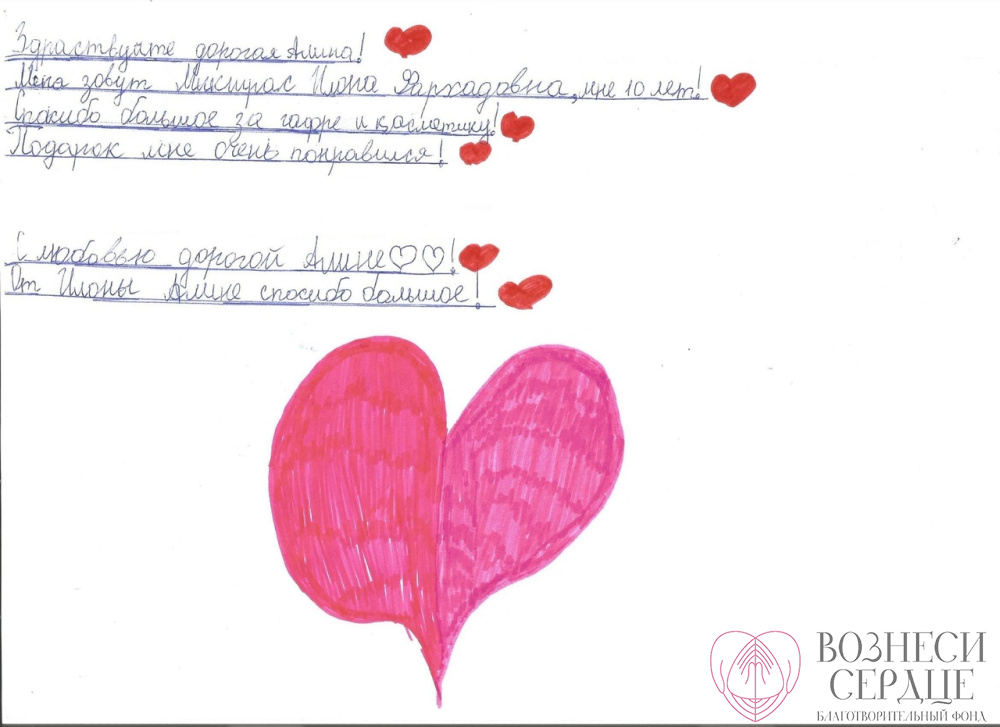 Здраствуйте дорогая Алина!
Меня зовут Илона Фархадовна, мне 10 лет!
Спасибо большое за гафре и косметику!
Подарок мне очень понравился!
С любовью дорогой Алине!
От Илоны Алине спасибо большое!
ВОЗНЕСИ
СЕРДЦЕ
БЛАГОТВОРИТЕЛЬНЫЙ ФОНД